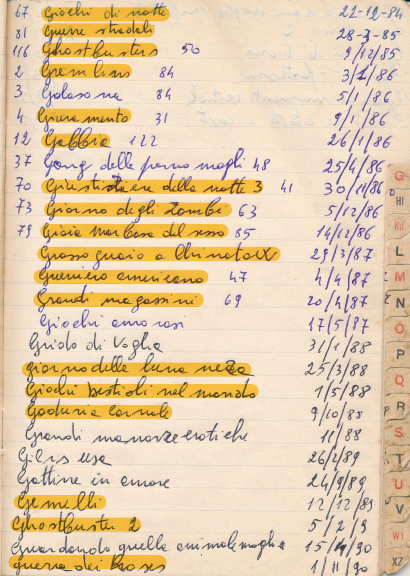 67 Giochi di notte 22-12-84
81 Guerre stradali 28-7-85
116 Ghostbusters 50 9/12/85
2 Gremlins 84 3/1/86
3 Golosona 84 5/1/86
4 Giuramento 31 9/1/86
12 Gabbia 122 26/1/86
37 Gang delle porno mogli 48 25/4/86
70 Giustiziere della notte 3 41 30/11/86
73 Giorno degli zombi 63 5/12/86
79 Gioia morbosa del sesso 85 14/12/86
Grosso guaio a Chinatown 29/3/87
Guerriero americano 47 4/4/87
Grandi magazzini 69 20/4/87
Giochi amorosi 17/5/87
Grido di voglia 31/1/88
giorno della luna nera 25/3/88
Giochi bestiali nel mondo 1/5/88
Goduria carnale 9/10/88
Grandi manovre erotiche 11/88
Girls usa 26/2/89
Gattine in amore 24/9/89
Gemelli 12/12/89
Ghostbuster 2 5/2/9
Guardando quella 15/4/90
guerra dei Roses 1/11/90
G
HI
L
M
N
O
P
Q
R
S
T
U
V
WY
XZ